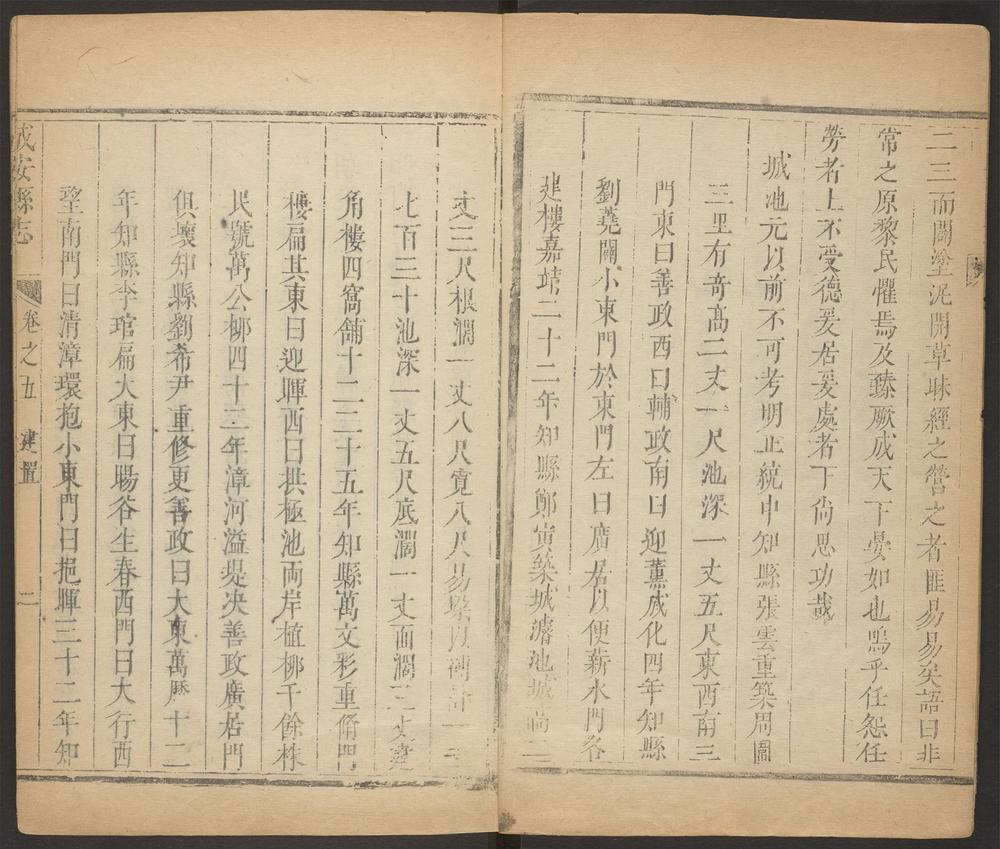 二三而闢塗泥開草昧經之營之者匪易易矣語曰非
常之原黎民懼焉及臻厥成天下晏如也嗚乎任怨任
勞者上不受德爰居爰處者下尚思功哉
城池元以前不可考明正統中知縣張雲重築周圍
三里有奇高二丈一尺池深一丈五尺東西南三
門東曰善政西曰輔政南曰迎薰成化四年知縣
劉蕘闢小東門於東門左曰廣居以便薪水門各
建樓嘉靖二十二年知縣鄭寅築城濬池城高二
丈三尺根濶一丈八尺寬八尺易垜以磚計一千
七百三十池深一丈五尺底濶一丈面濶三丈建
角樓四窩舖十二三十五年知縣萬文彩重脩門
樓扁其東曰迎暉西曰拱極池両岸植柳千餘株
民號萬公柳四十三年漳河溢堤决善政廣居門
俱壞知縣劉希尹重修更善政曰大東萬曆十二
年知縣李琯扁大東曰暘谷生春西門曰大行西
望南門曰清漳環抱小東門曰挹暉三十二年知
成安縣志 卷之五 建置 二